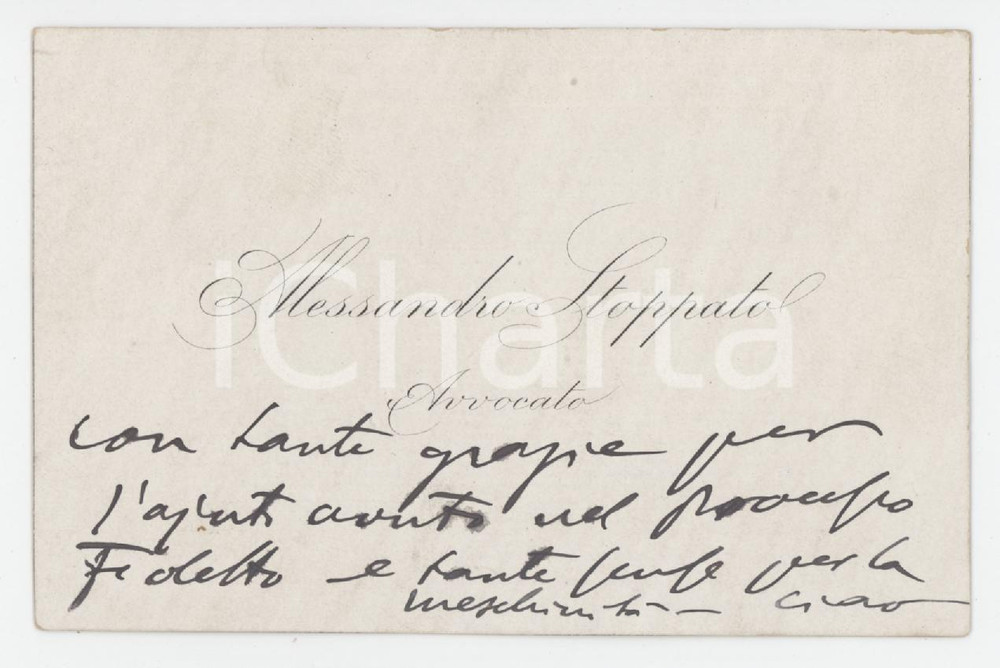 Alessandro Stoppato
iCharta
Avvocato
con tante grazie per
l'ajuto avuto nel processo
e tante scuse per la
meschinità - ciao